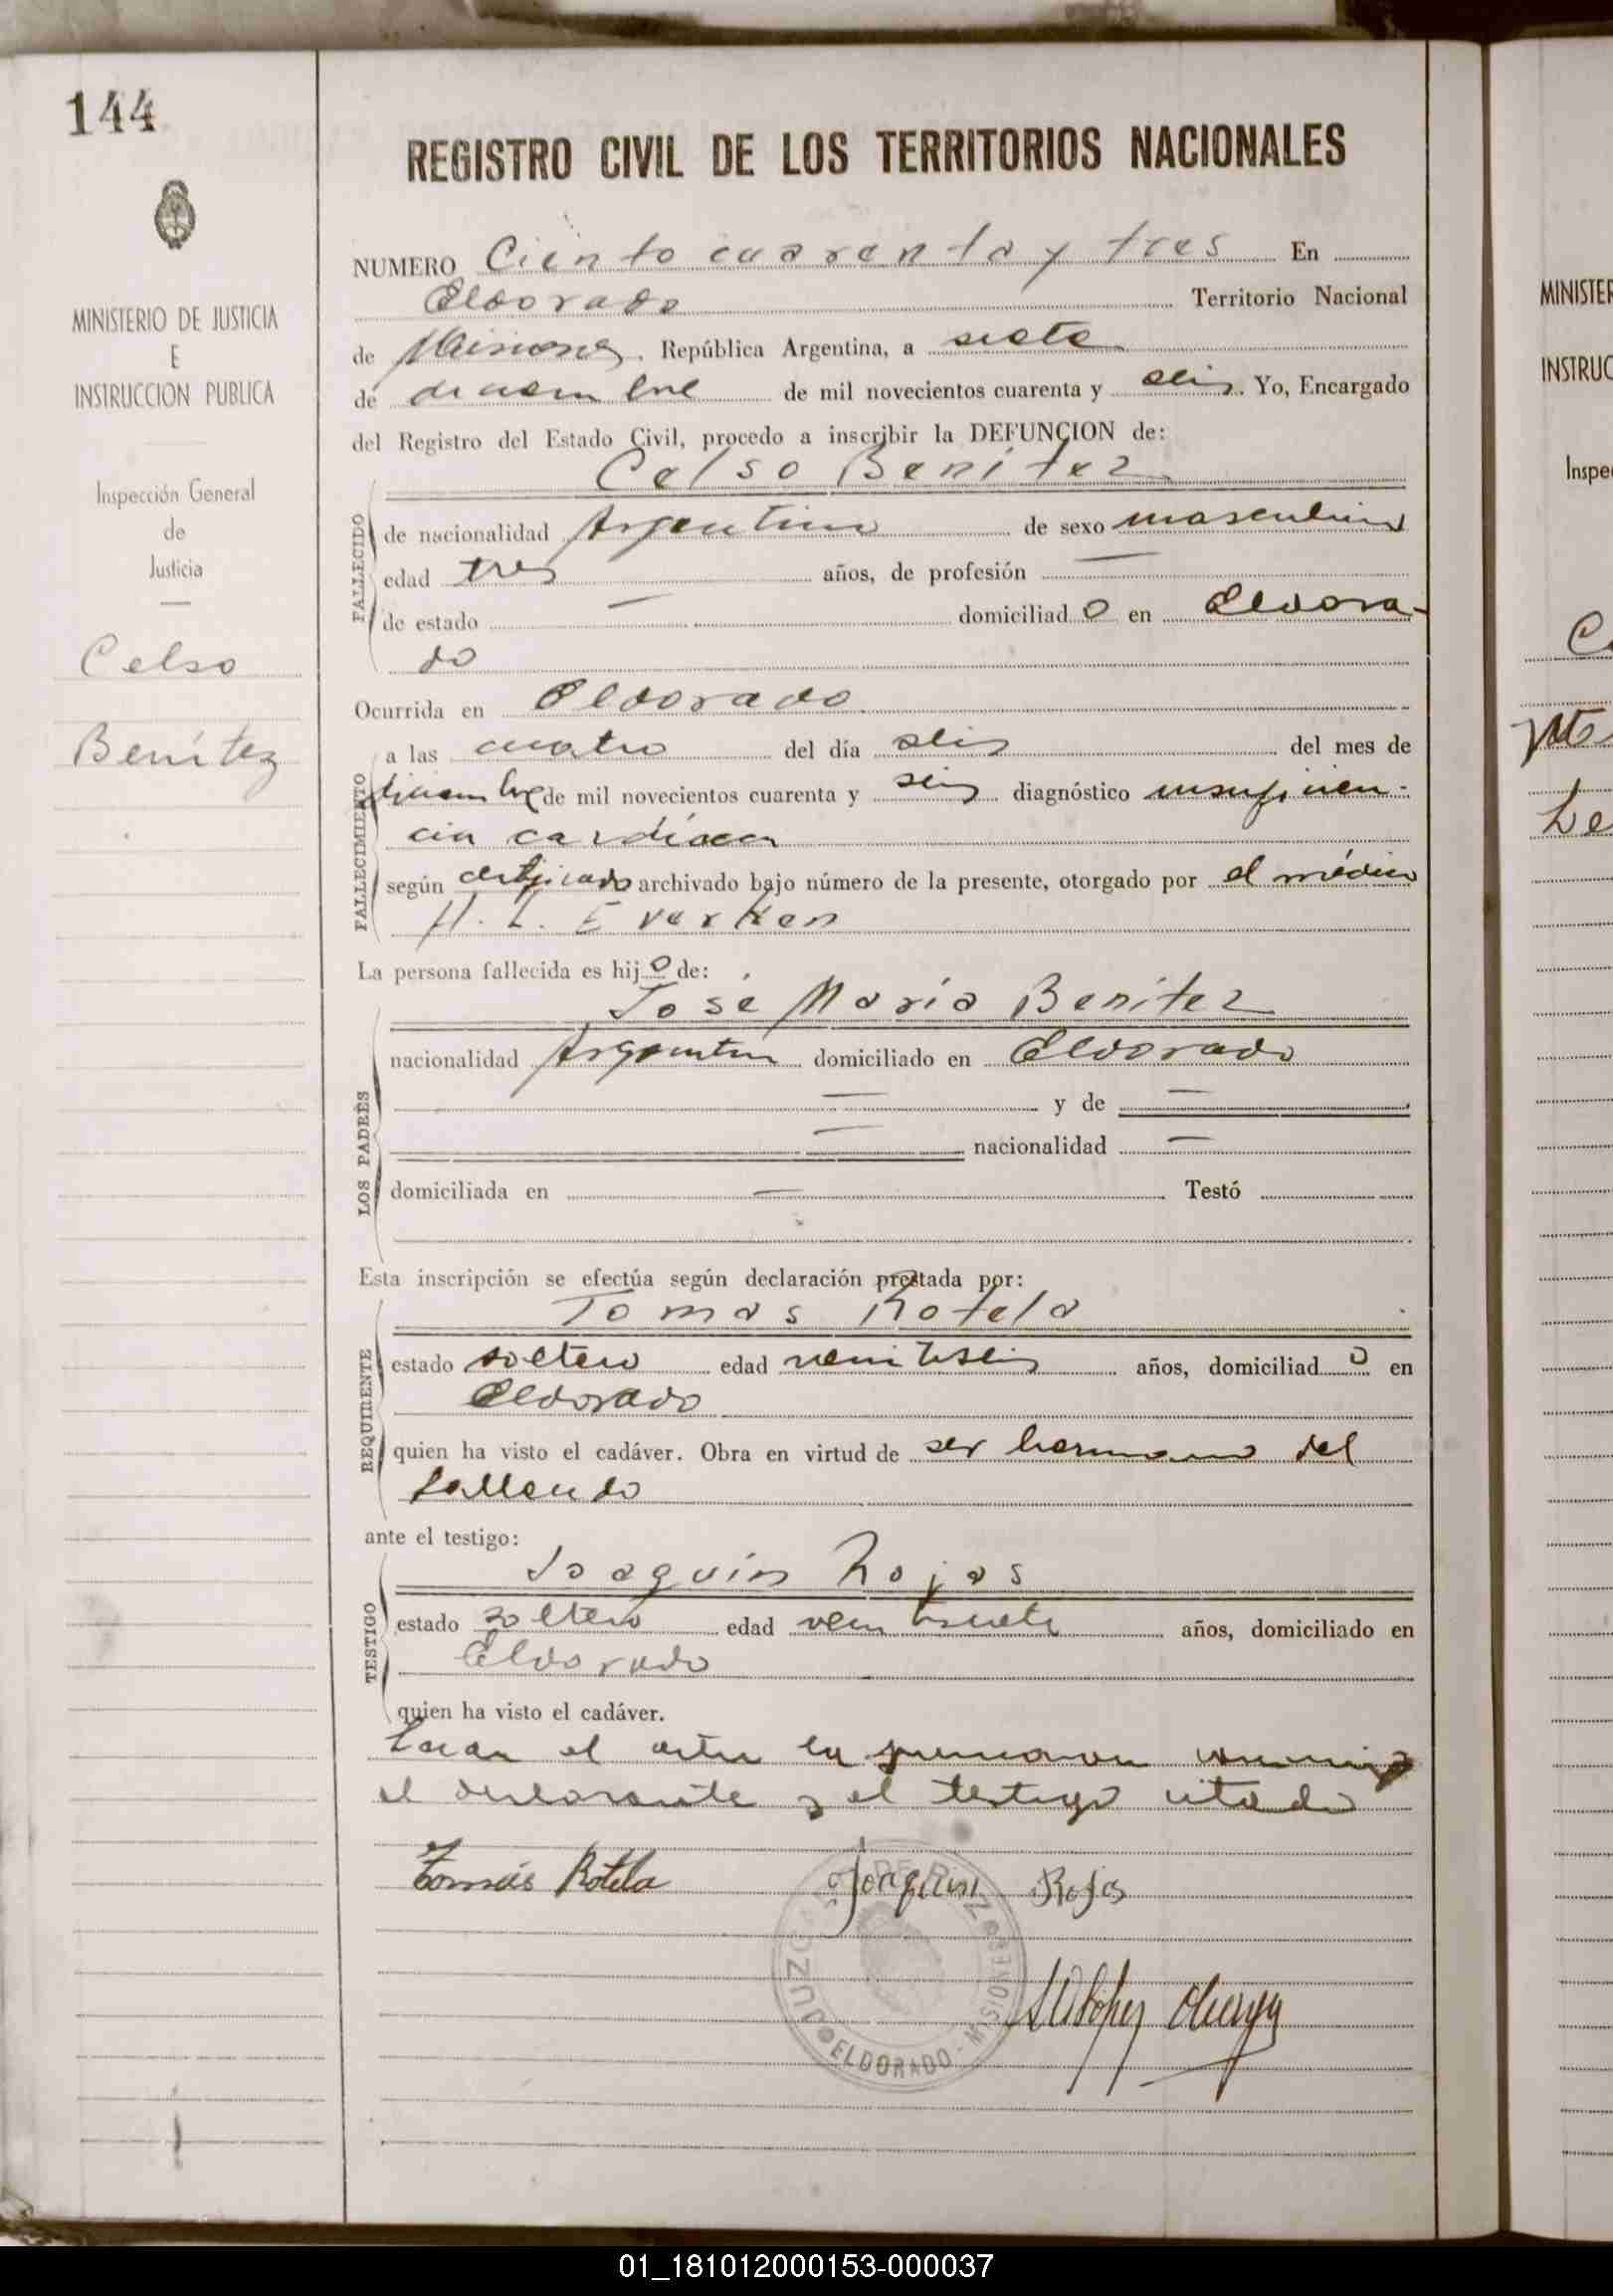 144
MINISTERIO DE JUSTICIA
E
INSTRUCCION PUBLICA
Inspección General
de
Justicia
Celso
Benítez
REGISTRO CIVIL DE LOS TERRITORIOS NACIONALES
NUMERO Ciento cuarenta y tres En
Eldorado Territorio Nacional
de Misiones, República Argentina, a siete
de diciembre de mil novecientos cuarenta y seis. Yo, Encargado
del Registro del Estado Civil, procedo a inscribir la DEFUNCION de:
Celso Benítez
FALLECIDO
de nacionalidad Argentino de sexo masculino
edad tres años, de profesión —
de estado — domiciliado en Eldora-
do
Ocurrida en Eldorado
FALLECIMIENTO
a las cuatro del día seis del mes de
diciembre de mil novecientos cuarenta y seis diagnóstico insuficien-
cia cardíaca
según certificado archivado bajo número de la presente, otorgado por el médico
H. L. Everken
La persona fallecida es hijo de:
José María Benítez
LOS PADRES
nacionalidad Argentin domiciliado en Eldorado
— y de —
— nacionalidad —
domiciliada en — Testó
Esta inscripción se efectúa según declaración prestada por:
Tomas Rotela
REQUIRENTE
estado soltero edad veintiseis años, domiciliado en
Eldorado
quien ha visto el cadáver. Obra en virtud de ser hermano del
fallecido
ante el testigo:
Joaquín Rojas
TESTIGO
estado soltero edad veintisiete años, domiciliado en
Eldorado
quien ha visto el cadáver.
el acta la
el declarante y el testigo citado
Tomás Rotela Joaquin Rojas
JUZGADO DE PAZ
ELDORADO - MISIONES
López
MINISTER
INSTRUC
Inspe
01_181012000153-000037